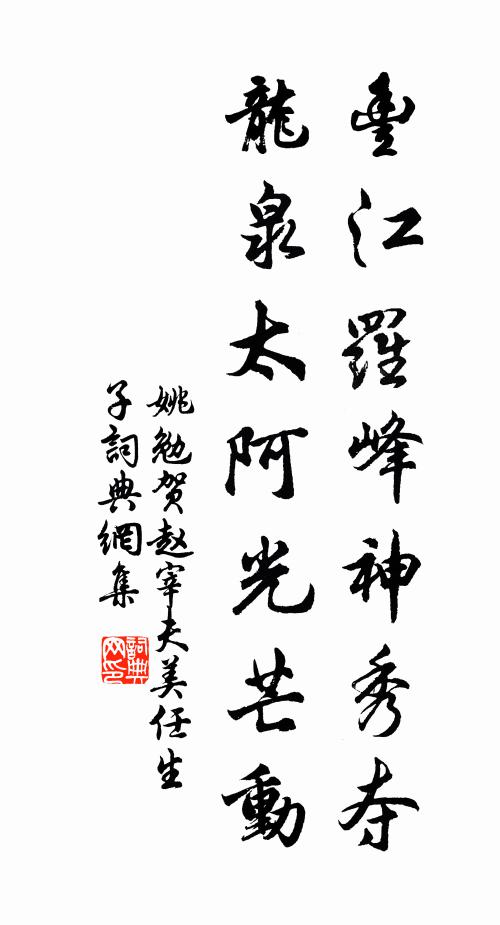 豊江羅峰神秀夺
龍泉太阿光芒動
姚勉贺赵宰夫美任生
子詞典網集
詞典网印